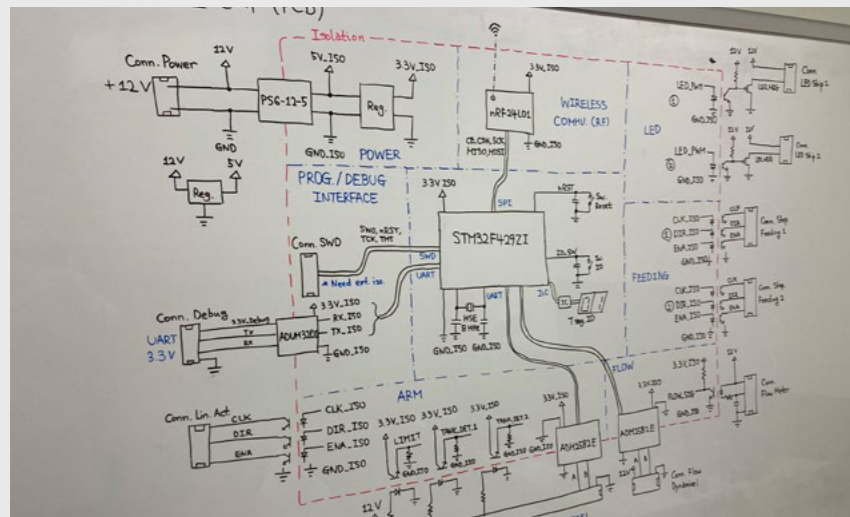 (PCB)
Isolation
Conn. Power
+12V
12V
GND
PS6-12-5
5V_ISO
Reg.
3.3V_ISO
GND_ISO
POWER
12V
5V
Reg.
nRF24L01
3.3V_ISO
GND_ISO
CE, CSN, SCK,
MISO, MOSI
WIRELESS
COMMU. (RF)
LED
LED_PWM
①
GND_ISO
12V
12V
Conn.
LED Strip 1
LED_PWM
②
GND_ISO
12V
12V
Conn.
LED Strip 2
PROG./DEBUG
INTERFACE
Conn. SWD
SWD, nRST,
TCK, TMS
* Need ext. iso.
3.3V_ISO
SPI
STM32F429ZI
SWD
UART
UART
I2C
nRST
Sw.
Reset
ID_SW
Sw.
ID
IC
7 seg. ID
HSE
8 MHz
GND_ISO
GND_ISO
Conn. Debug
UART
3.3V
3.3V_Debug
TX
RX
3.3V_ISO
RX_ISO
TX_ISO
GND_ISO
FEEDING
CLK_ISO
① DIR_ISO
ENA_ISO
GND_ISO
CLK
DIR
ENA
Conn. Step.
Feeding 1
CLK_ISO
② DIR_ISO
ENA_ISO
GND_ISO
CLK
DIR
ENA
Conn. Step
Feeding 2
FLOW
3.3V_ISO
12V
FLOW_SIG
GND_ISO
Conn.
Flow Meter
ARM
Conn. Lin. Act.
CLK
DIR
ENA
CLK_ISO
DIR_ISO
ENA_ISO
GND_ISO
3.3V_ISO
LIMIT
GND_ISO
3.3V_ISO
TANK_DET.1
GND_ISO
3.3V_ISO
TANK_DET.2
GND_ISO
3.3V_ISO
GND_ISO
ADM2582E
A
B
3.3V_ISO
ADM2582E
A
B
12V
Conn. Flow
Dynamixel
12V